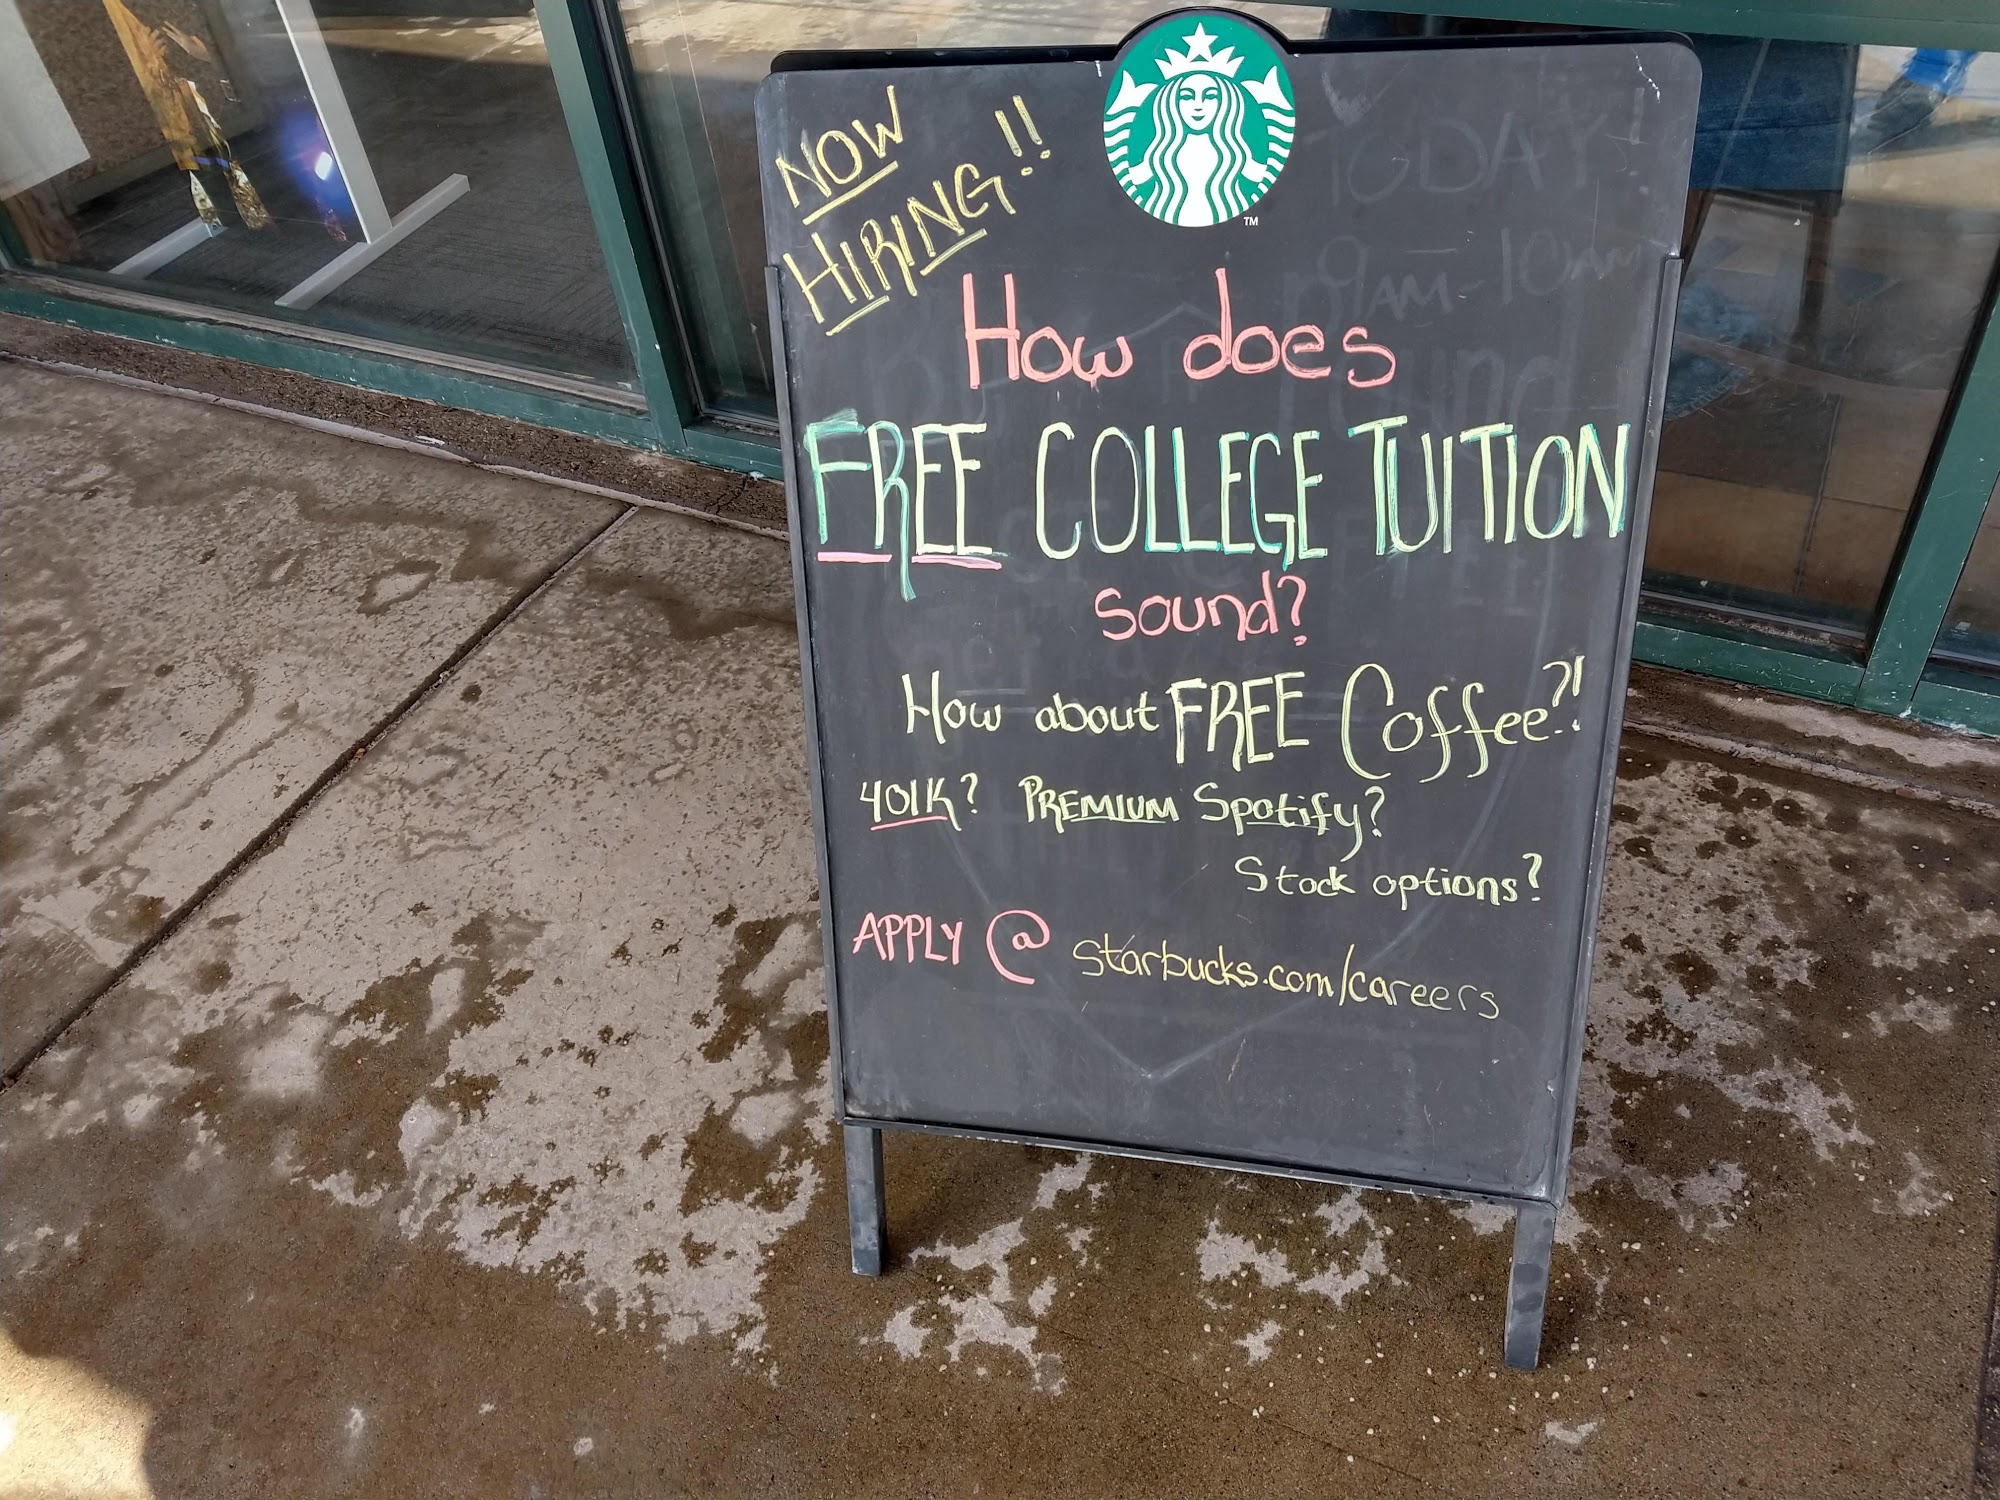 NOW
HIRING!!
TM
TODAY!
9AM-10AM
How does
FREE COLLEGE TUITION
sound?
How about FREE Coffee?!
401K? PREMIUM Spotify?
Stock options?
APPLY @ starbucks.com/careers